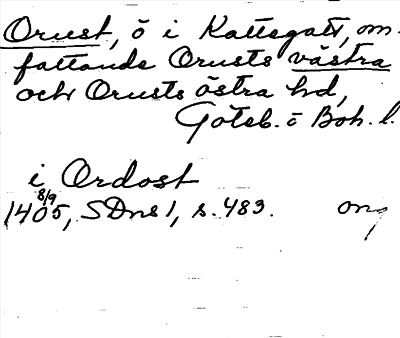 Orust, ö i Kattegatt, om-
fattande Orusts västra
och Orusts östra hd,
Göteb. o Boh. l.
i Ordost
8/9
1405, SDns 1, s. 483. ong